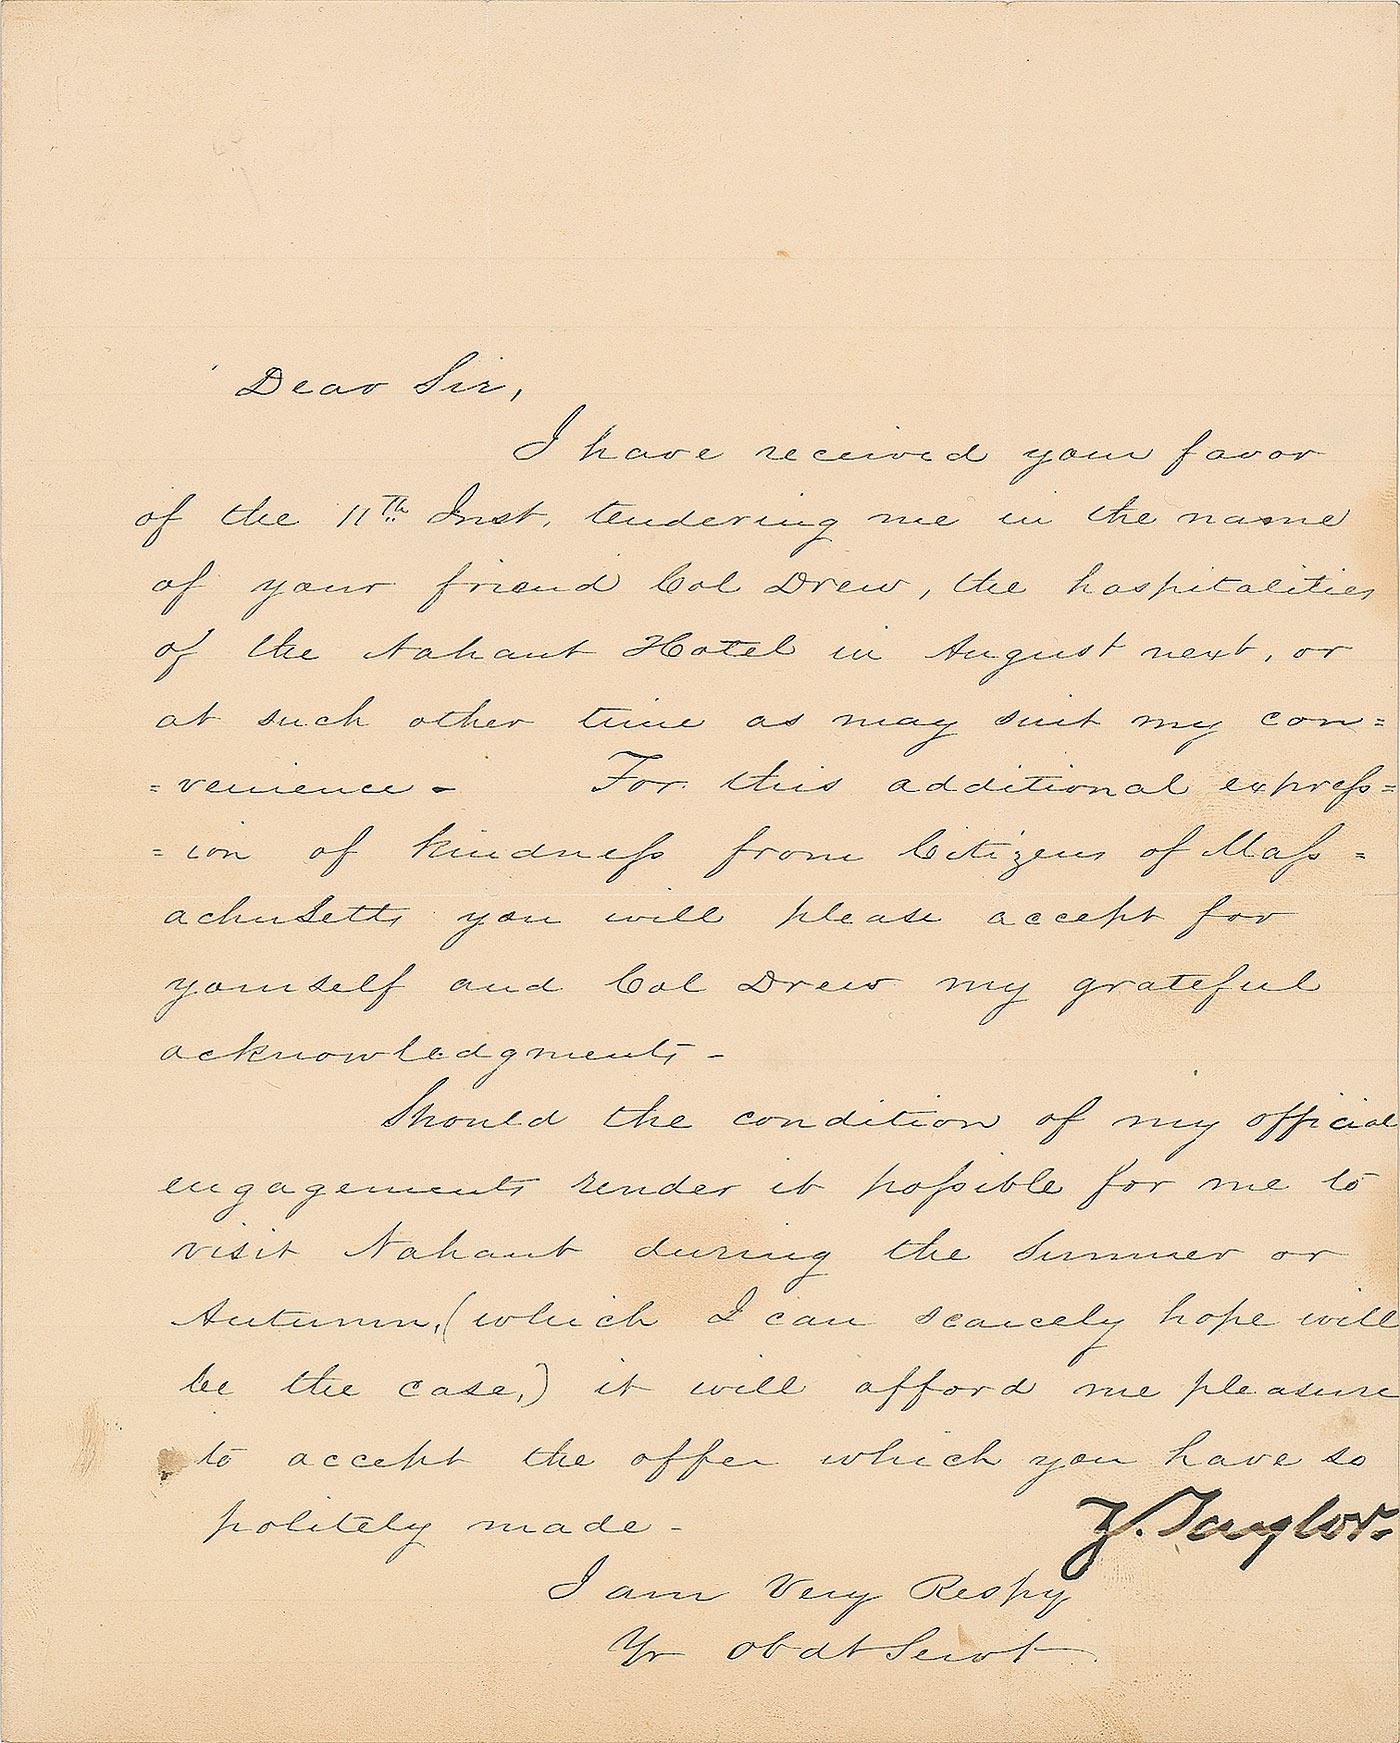 Dear Sir,
I have received your favor
of the 11th Inst, tendering me in the name
of your friend Col Drew, the hospitalities
of the Nahant Hotel in August next, or
at such other time as may suit my con=
=venience - For this additional expreſs=
=ion of kindneſs from Citizens of Maſs=
achusetts you will please accept for
yourself and Col Drew my grateful
acknowledgments -
Should the condition of my official
engagements render it poſsible for me to
visit Nahant during the Summer or
Autumn, (which I can scarcely hope will
be the case,) it will afford me pleasure
to accept the offer which you have so
politely made -
Z. Taylor.
I am Very Respy
Yr Obdt Servt